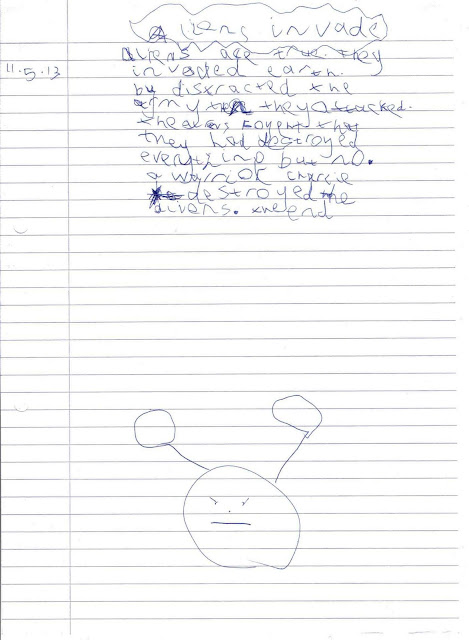 Aliens invade
11.5.13
aliens are true they
invaded earth.
by disxracted xhe
army they attacked.
xhe aliens
they had destroyed
everyxing but no.
a warrior
destroyed xhe
aliens. xhe end